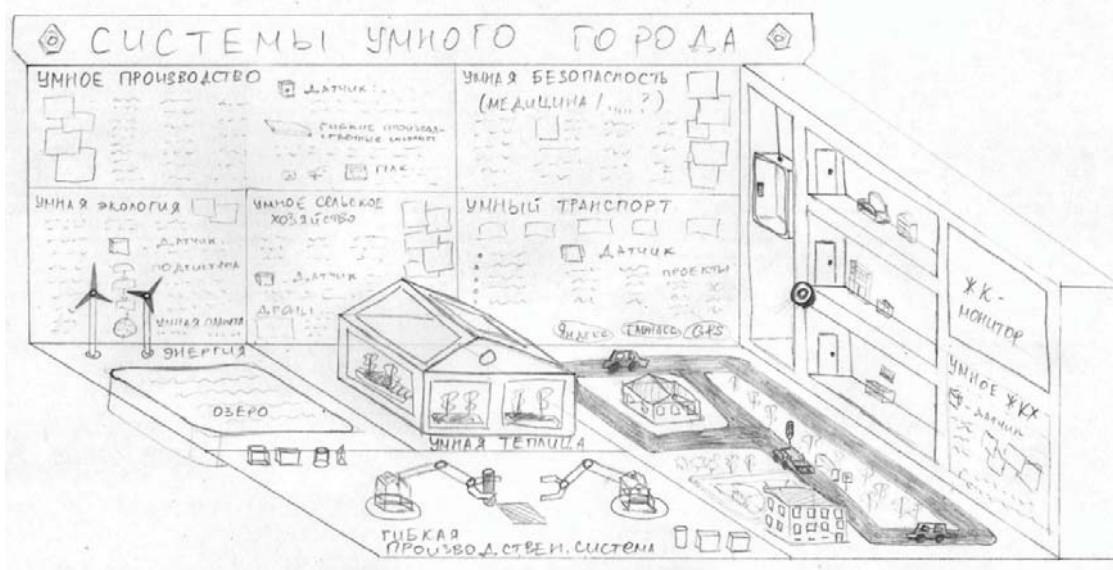 СИСТЕМЫ УМНОГО ГОРОДА
УМНОЕ ПРОИЗВОДСТВО
ДАТЧИК
ГИБКИЕ ПРОИЗВОД-
СТВЕННЫЕ
ПЛК
УМНАЯ БЕЗОПАСНОСТЬ
(МЕДИЦИНА / ..... ?)
УМНАЯ ЭКОЛОГИЯ
ДАТЧИК
ПОДСИСТЕМА
УМНАЯ ПЛАНЕТА
ЭНЕРГИЯ
УМНОЕ СЕЛЬСКОЕ
ХОЗЯЙСТВО
ДАТЧИК
ДРОНЫ
УМНЫЙ ТРАНСПОРТ
ДАТЧИК
ПРОЕКТЫ
Яндекс
ГЛОНАСС
GPS
ЖК-
МОНИТОР
УМНОЕ ЖКХ
ДАТЧИК
ОЗЕРО
УМНАЯ ТЕПЛИЦА
ГИБКАЯ
ПРОИЗВОДСТВЕН. СИСТЕМА